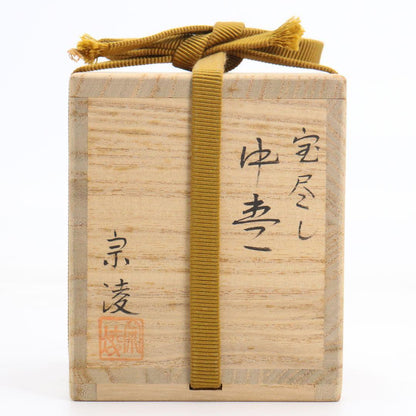 宝尽し
中棗
宗凌